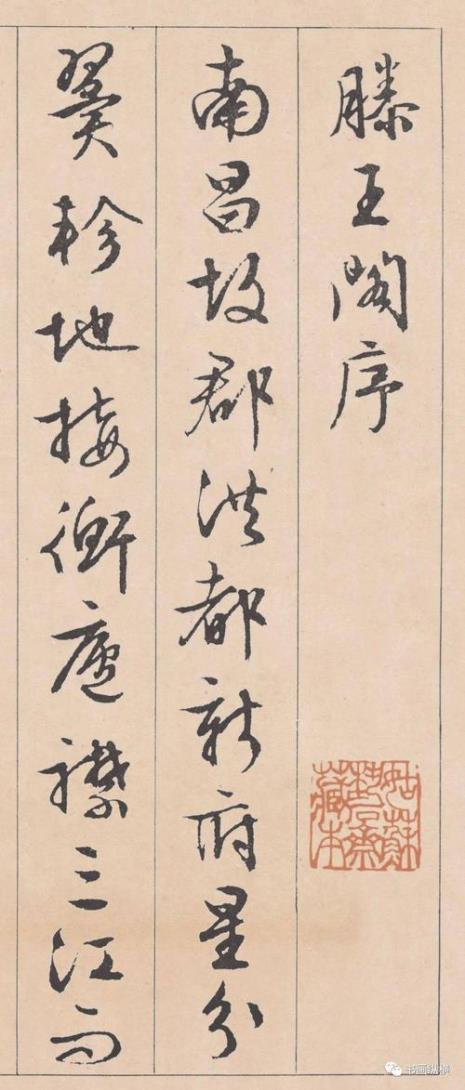 滕王阁序
南昌故郡洪都新府星分
翼轸地接衡庐襟三江而
书画纵横